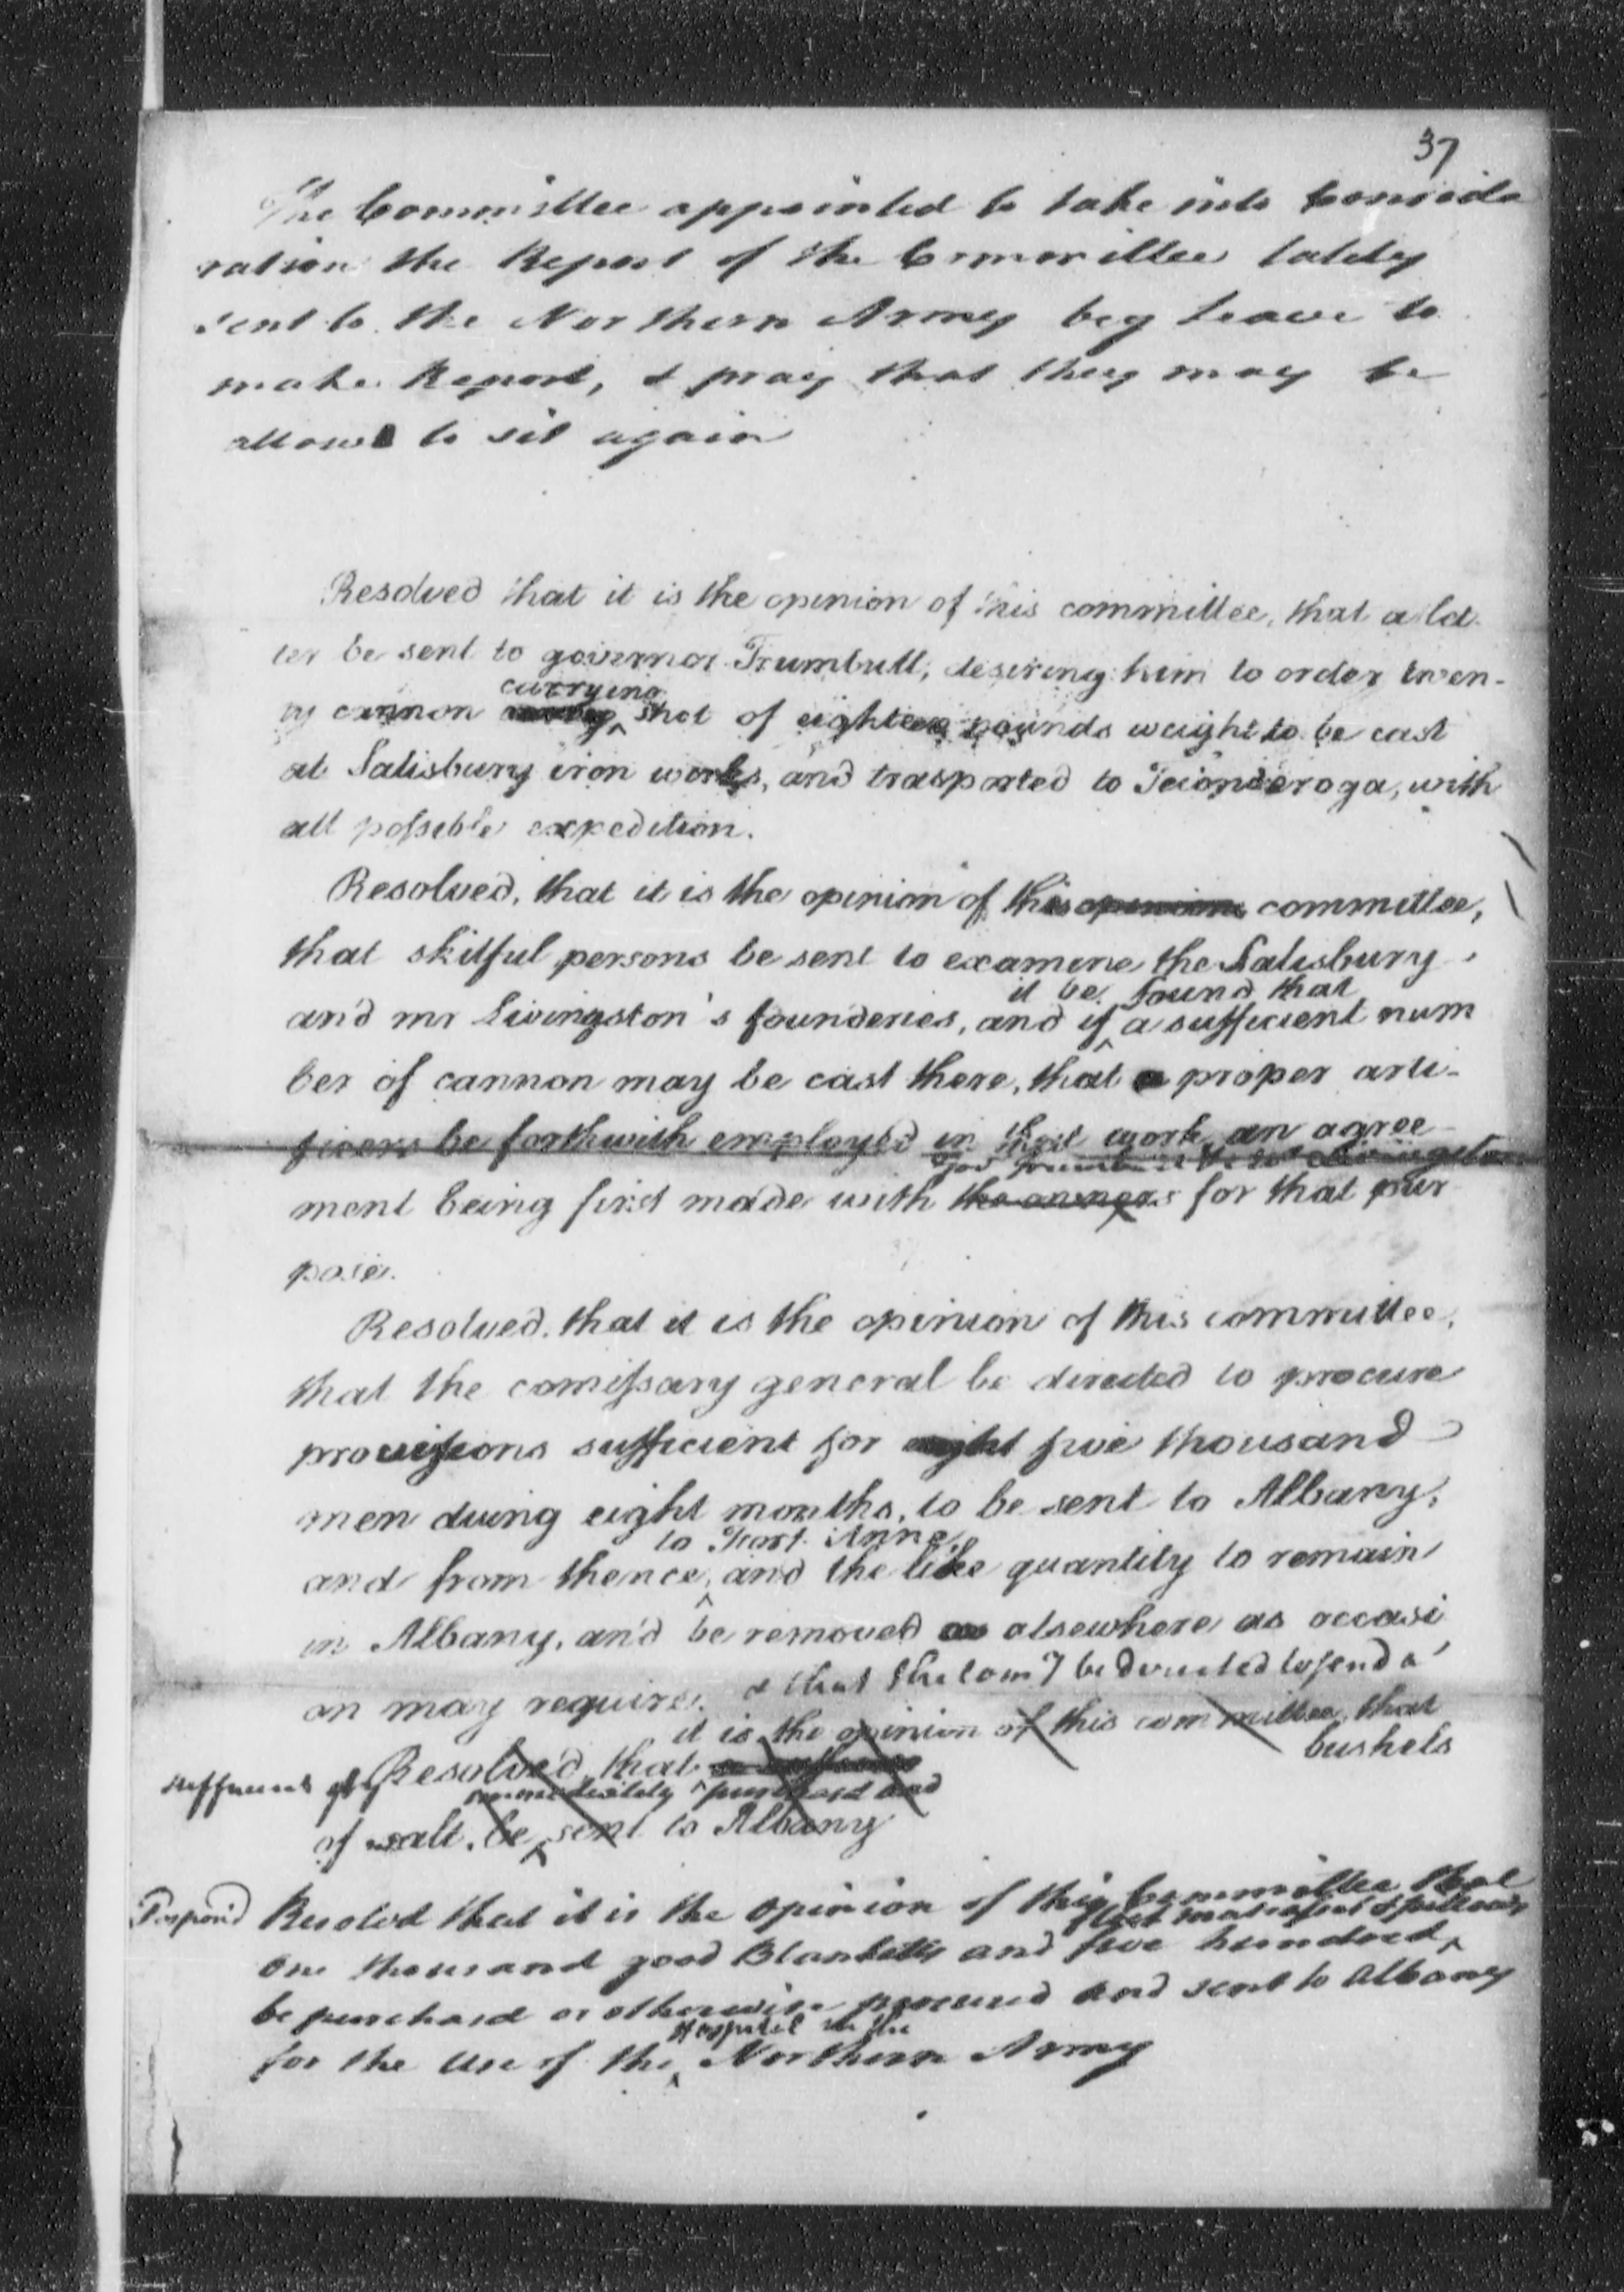 37
The Committee appointed to take into Conside
ration the Report of the Committee lately
sent to the Northern Army beg leave to
make Report, & pray that they may be
allowd to sit again
Resolved that it is the opinion of this committee, that a let-
ter be sent to governor Trumbull, desiring him to order twen-
carrying
ty cannon shot of eighteen pounds weight to be cast
at Salisbury iron works, and trasported to Ticonderoga, with
all possible expedition.
Resolved, that it is the opinion of this opinion committee,
that skilful persons be sent to examine the Salisbury
it be found that
and mr Livingston's founderies, and if a sufficient num
ber of cannon may be cast there, that a proper arti-
ficers be forthwith employed in that work, an agree
Gov Trumbull & mr Livingston
ment being first made with the owners for that pur
pose.
Resolved, that it is the opinion of this committee,
that the comissary general be directed to procure
provisions sufficient for eight five thousand
men duing eight months, to be sent to Albany,
to Fort Anne,
and from thence, and the like quantity to remain
in Albany, and be removed as alsewhere as occasi
on may require. & that the Com Gl be directed to send a
it is the opinion of this committee, that
sufficient qty Resolved, that bushels
immediately purchased and
of salt, be sent to Albany
Pospon'd Resolvd that it is the opinion of this Committee that
one thousand good Blanketts and five hundred
be purchased or otherwise procured and sent to Albany
Hospital in the
for the use of the Northern Army